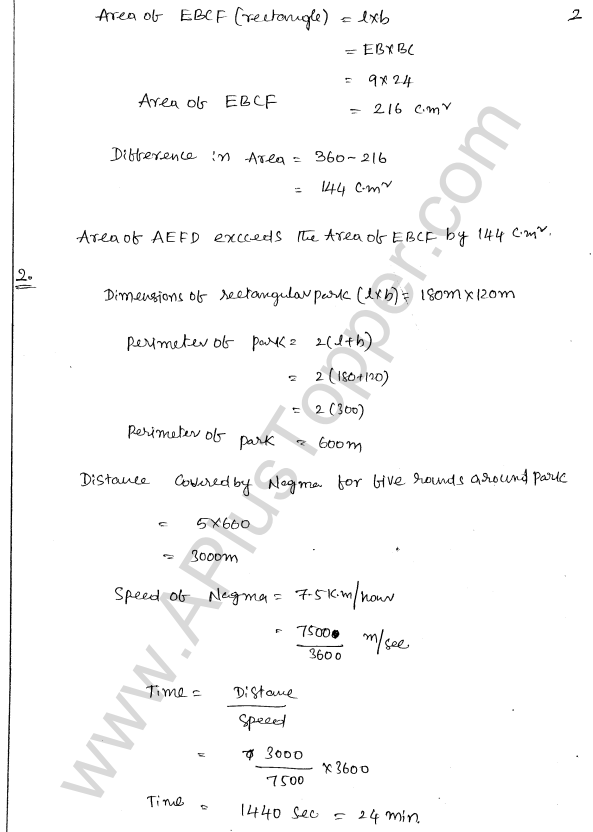 2
Area of EBCF (rectangle) = l×b
= EB×BC
= 9×24
Area of EBCF = 216 c.m²
Difference in Area = 360-216
= 144 c.m²
Area of AEFD exceeds the Area of EBCF by 144 c.m².
2.
Dimensions of rectangular park (l×b) = 180m×120m
Perimeter of park = 2(l+b)
= 2(180+120)
= 2(300)
Perimeter of park = 600m
Distance covered by Nagma for five rounds around park
= 5×600
= 3000m
Speed of Nagma = 7.5 K.m/hour
= 7500/3600 m/sec
Time = Distance/Speed
= 3000/7500 ×3600
Time = 1440 sec = 24 min.
www.APlusTopper.com